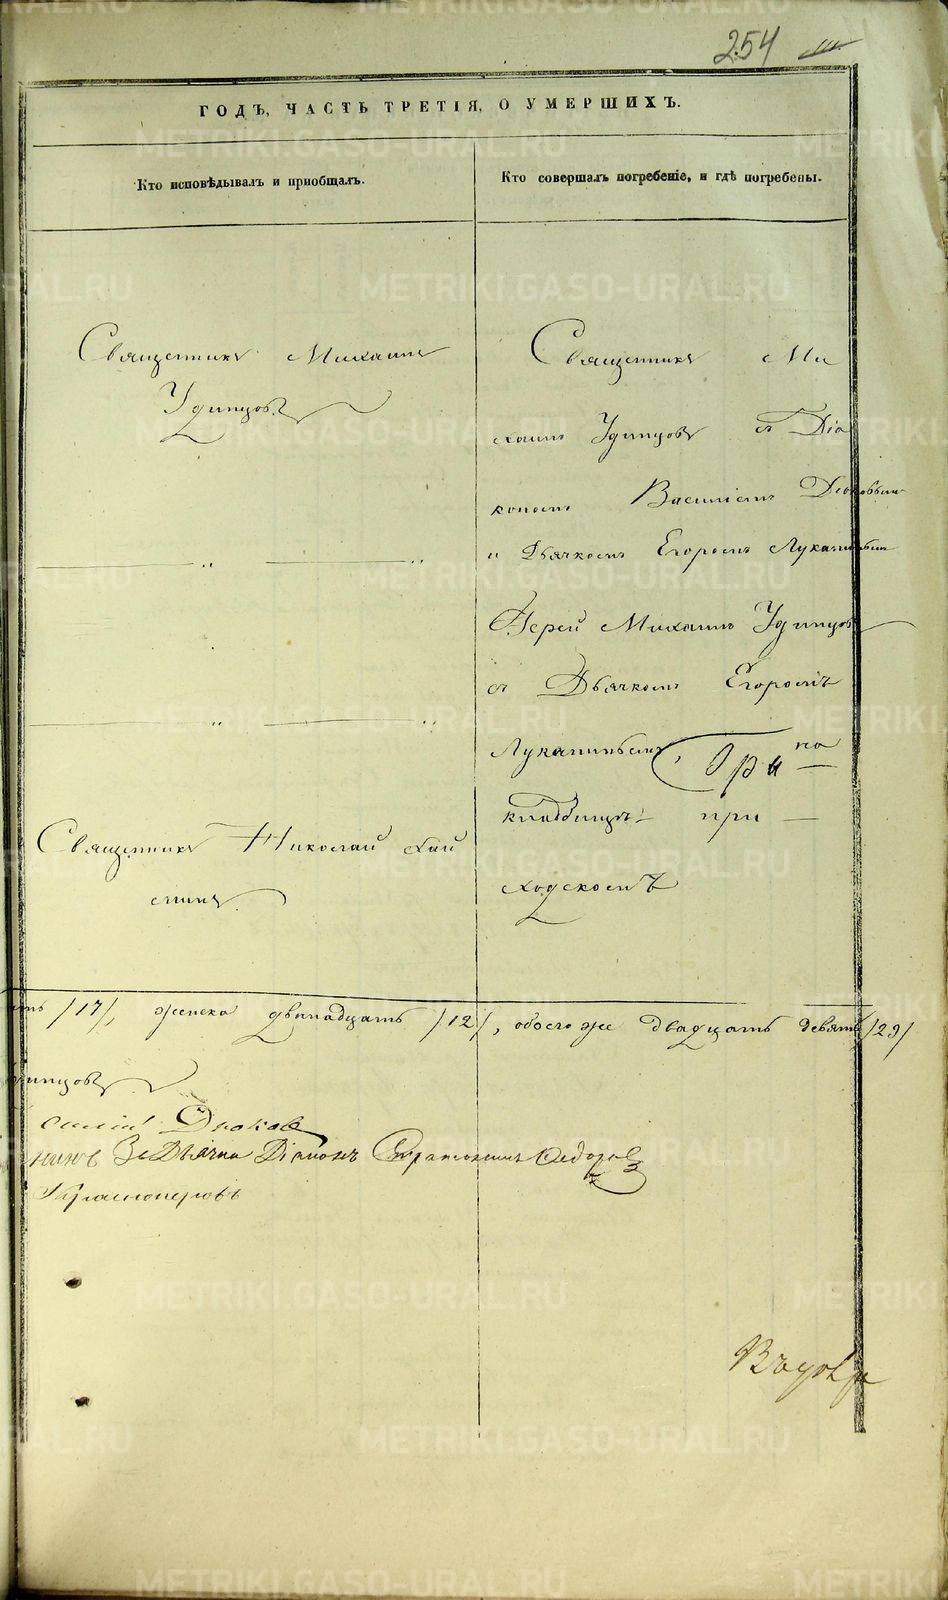 254
ГОДЪ, ЧАСТЬ ТРЕТІЯ, О УМЕРШИХЪ.
Кто исповѣдывалъ и пріобщалъ.
Кто совершалъ погребеніе, и гдѣ погребены.
Священникъ Михаилъ
Удинцовъ.
Священникъ Николай
Священникъ Ми
хаилъ Удинцовъ съ Діа
кономъ Василіемъ
и Дьячкомъ Егоромъ Луканинымъ
Іерей Михаилъ Удинцовъ
съ Дьячкомъ Егоромъ
Луканинымъ При на
кладбищѣ при
ходскомъ
/17/, женска двѣнадцать /12/, обоего же двадцать девять /29/
динцовъ
силій Дюков
нинъ За Дьячка Діаконъ Федоров
Красноперовъ
METRIKI.GASO-URAL.RU